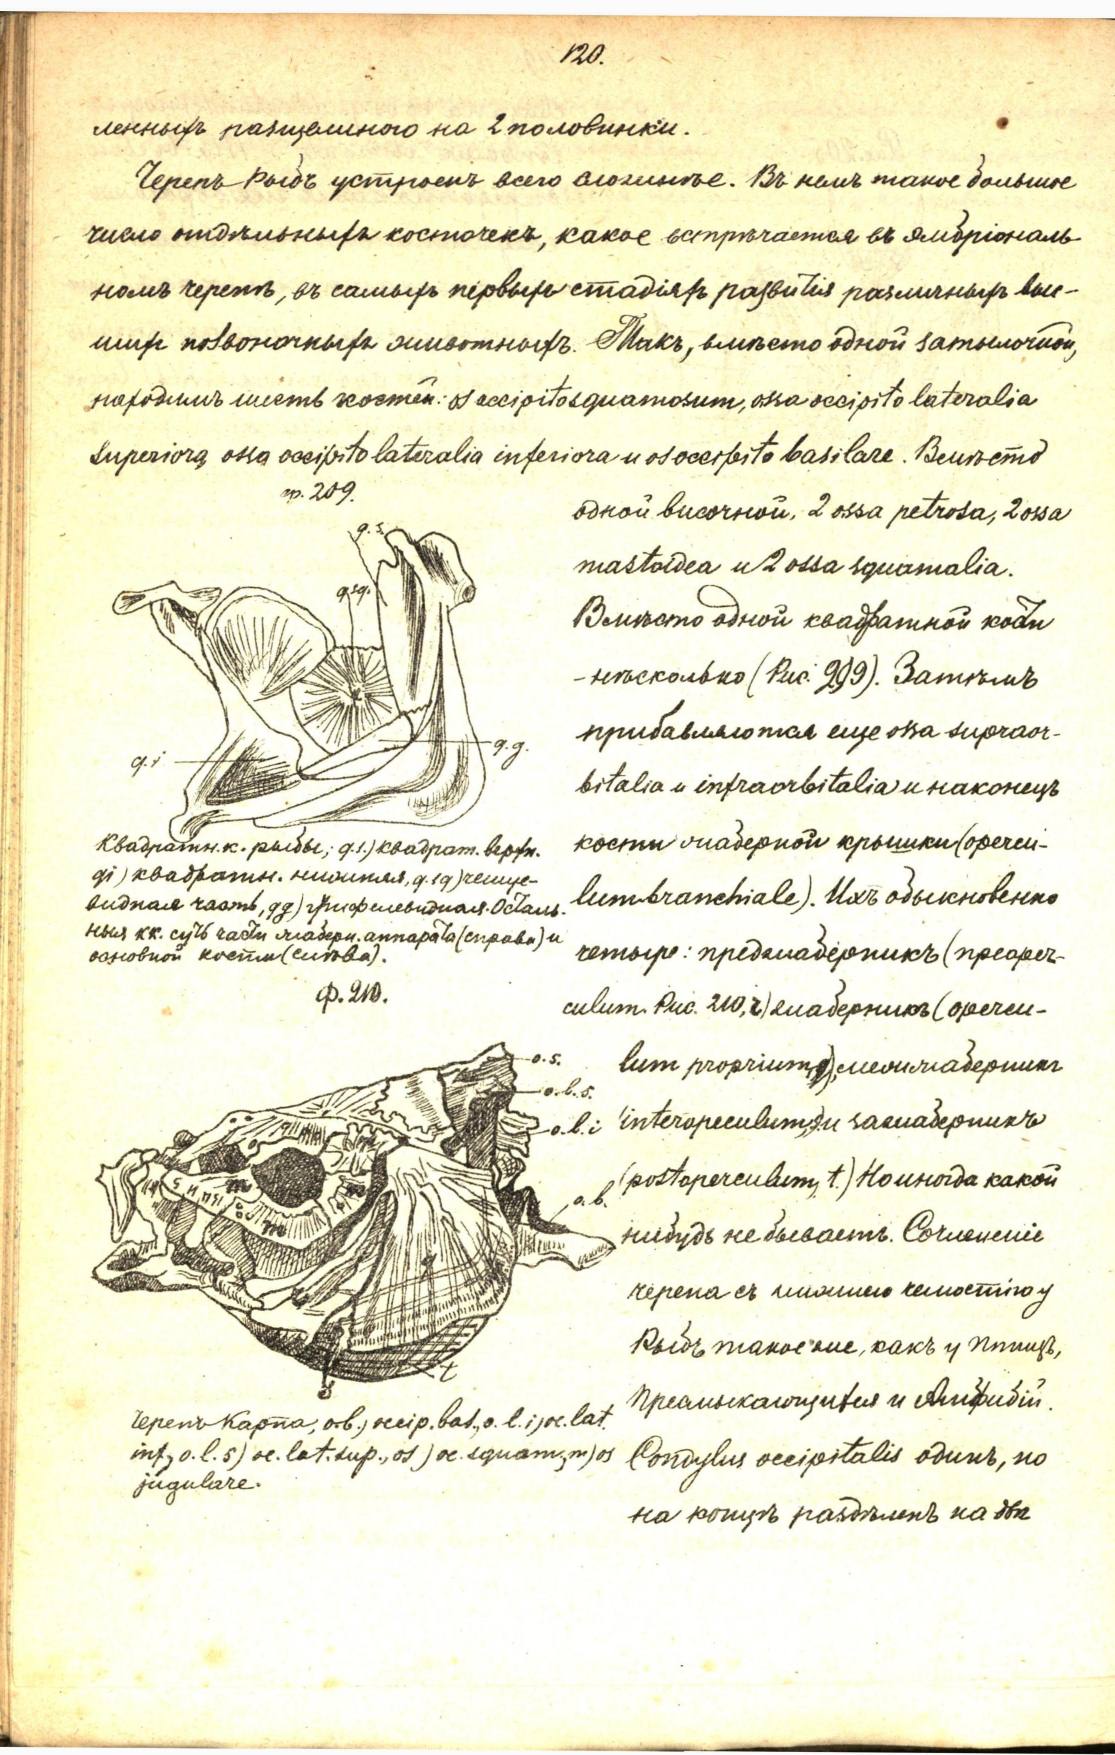 120.
ленныхъ разщелиного на 2 половинки.
Черепъ Рыбъ устроенъ всего сложнѣе. Въ немъ такое большое
число отдѣльныхъ косточекъ, какое встрѣчается въ эмбріональ-
номъ черепѣ, въ самыхъ первыхъ стадіяхъ развитія различныхъ выс-
шихъ позвоночныхъ животныхъ. Такъ, вмѣсто одной затылочной,
находимъ шесть костей: os occipitosquamosum, ossa occipito lateralia
superiora, ossa occipito lateralia inferiora и os occipito basilare. Вмѣсто
ф. 209.
одной височной, 2 ossa petrosa, 2 ossa
mastoidea и 2 ossa squamalia.
Вмѣсто одной квадратной кости
- нѣсколько (Рис. 209). Затѣмъ
прибавляются еще ossa supraor-
bitalia и infraorbitalia и наконецъ
кости жаберной крышки (opercu-
lum branchiale). Ихъ обыкновенно
четыре: преджаберникъ (preoper-
culum. Рис. 210, r) жаберникъ (opercu-
lum proprium, межжаберникъ
interoperculum, и зажаберникъ
(postoperculum, t.) Но иногда какой
нибудь не бываетъ. Сочлененіе
черепа съ нижнею челюстію у
Рыбъ такое же, какъ у Птицъ,
Пресмыкающихся и Амфибій.
Condylus occipitalis одинъ, но
на концѣ раздѣленъ на двѣ
q.s.
q.sq.
q.i
q.g.
Квадратн. к. рыбы; q.s.) квадрат. верхн.
qi) квадратн. нижняя, q.sq) чешуе-
видная часть, qg) грифелевидная. Осталь-
ныя кк. суть части жаберн. аппарата (справа) и
основной кости (слѣва).
Ф. 210.
o.s.
o.l.s.
o.l.i
o.b.
m
t
s
Черепъ Карпа, o.b.) occip. bas., o.l.i) oc. lat.
inf, o.l.s) oc. lat. sup., os) oc. squam, m) os
jugulare.